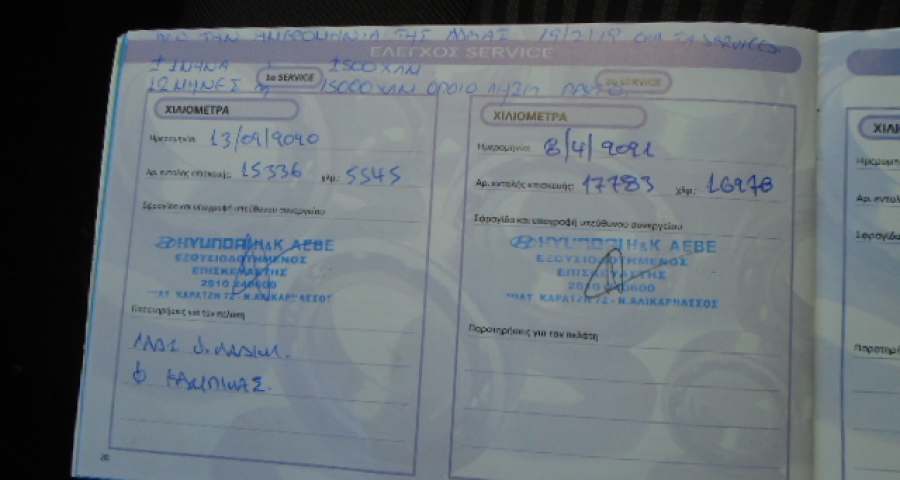 ΤΗΝ ΗΜΕΡΟΜΗΝΙΑ ΤΗΣ 19/2/19 ΤΑ SERVICES
ΕΛΕΓΧΟΣ SERVICE
1 ΜΗΝΑ 1500 ΧΛΜ
12 ΜΗΝΕΣ ή 15000 ΧΛΜ ΟΠΟΙΟ
1ο SERVICE
2ο SERVICE
ΧΙΛΙΟΜΕΤΡΑ
Ημερομηνία: 13/09/2020
Αρ. εντολής επισκευής: 15336 χλμ.: 5545
Σφραγίδα και υπογραφή υπεύθυνου συνεργείου
HYUNDAI H&K ΑΕΒΕ
ΕΞΟΥΣΙΟΔΟΤΗΜΕΝΟΣ
ΕΠΙΣΚΕΥΑΣΤΗΣ
2810 240600
ΠΛΑΤ. ΚΑΡΑΤΖΗ 72 - Ν.ΑΛΙΚΑΡΝΑΣΣΟΣ
Παρατηρήσεις για τον πελάτη
ΚΑΜΠΙΝΑΣ.
20
ΧΙΛΙΟΜΕΤΡΑ
Ημερομηνία: 8/4/2021
Αρ. εντολής επισκευής: 17783 χλμ.: 16978
Σφραγίδα και υπογραφή υπεύθυνου συνεργείου
HYUNDAI H&K ΑΕΒΕ
ΕΞΟΥΣΙΟΔΟΤΗΜΕΝΟΣ
ΕΠΙΣΚΕΥΑΣΤΗΣ
2810 240600
ΠΛΑΤ. ΚΑΡΑΤΖΗ 72 - Ν.ΑΛΙΚΑΡΝΑΣΣΟΣ
Παρατηρήσεις για τον πελάτη